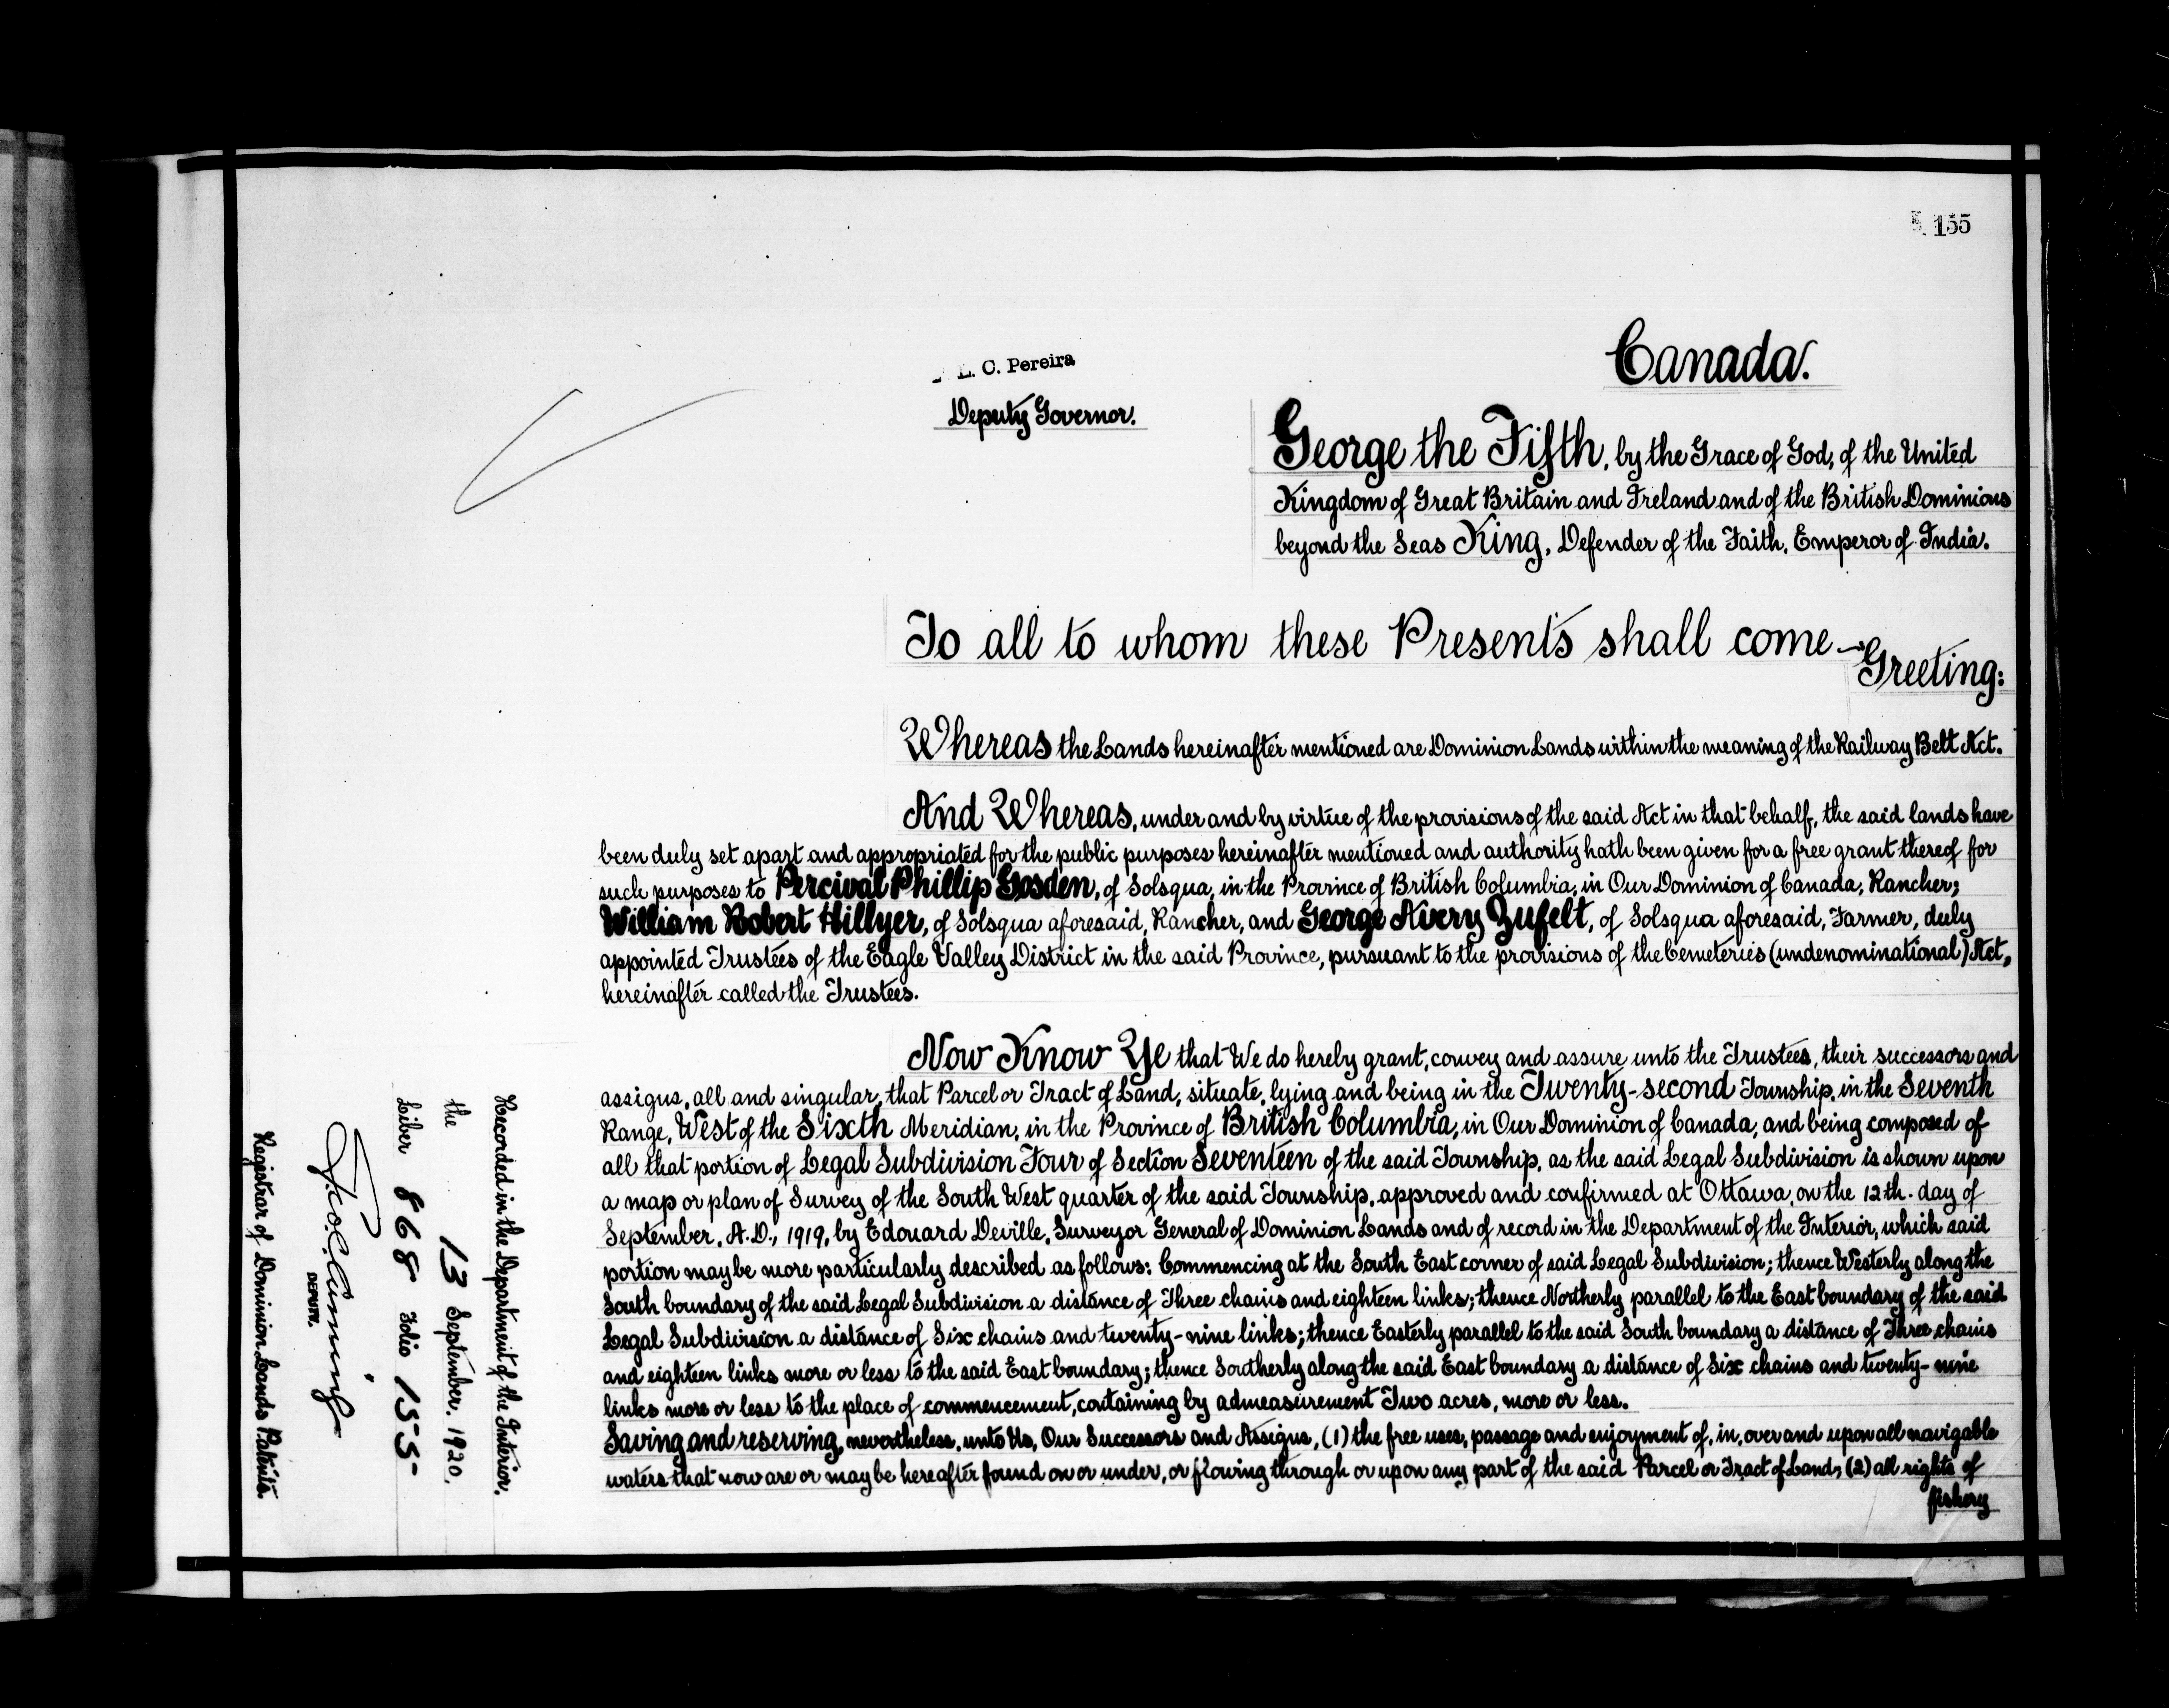 155
Canada.
L. C. Pereira
Deputy Governor.
George the Fifth, by the Grace of God, of the United
Kingdom of Great Britain and Ireland and of the British Dominions
beyond the Seas King, Defender of the Faith, Emperor of India.
To all to whom these Presents shall come
Greeting:
Whereas the Lands hereinafter mentioned are Dominion Lands within the meaning of the Railway Belt Act.
And Whereas, under and by virtue of the provisions of the said Act in that behalf, the said lands have
been duly set apart and appropriated for the public purposes hereinafter mentioned and authority hath been given for a free grant thereof for
such purposes to Percival Phillip Gosden, of Solsqua, in the Province of British Columbia, in Our Dominion of Canada, Rancher;
William Robert Hillyer, of Solsqua aforesaid, Rancher, and George Avery Zufelt, of Solsqua aforesaid, Farmer, duly
appointed Trustees of the Eagle Valley District in the said Province, pursuant to the provisions of the Cemeteries (undenominational) Act,
hereinafter called the Trustees.
Now Know Ye that We do hereby grant, convey and assure unto the Trustees, their successors and
assigns, all and singular, that Parcel or Tract of Land, situate, lying and being in the Twenty-second Township, in the Seventh
Range, West of the Sixth Meridian, in the Province of British Columbia, in Our Dominion of Canada, and being composed of
all that portion of Legal Subdivision Four of Section Seventeen of the said Township, as the said Legal Subdivision is shown upon
a map or plan of Survey of the South West quarter of the said Township, approved and confirmed at Ottawa, on the 12th. day of
September, A.D., 1919, by Edouard Deville, Surveyor General of Dominion Lands and of record in the Department of the Interior, which said
portion may be more particularly described as follows: Commencing at the South East corner of said Legal Subdivision; thence Westerly along the
South boundary of the said Legal Subdivision a distance of Three chains and eighteen links; thence Northerly parallel to the East boundary of the said
Legal Subdivision a distance of Six chains and twenty-nine links; thence Easterly parallel to the said South boundary a distance of Three chains
and eighteen links more or less to the said East boundary; thence Southerly along the said East boundary a distance of Six chains and twenty-nine
links more or less to the place of commencement, containing by admeasurement Two acres, more or less.
Saving and reserving, nevertheless, unto Us, Our Successors and Assigns, (1) the free uses, passage and enjoyment of, in, over and upon all navigable
waters that now are or may be hereafter found on or under, or flowing through or upon any part of the said Parcel or Tract of Land; (2) all rights of
fishery
Recorded in the Department of the Interior.
the 13 September, 1920,
Liber 868 Folio 155
DEPUTY.
Registrar of Dominion Lands Patents.